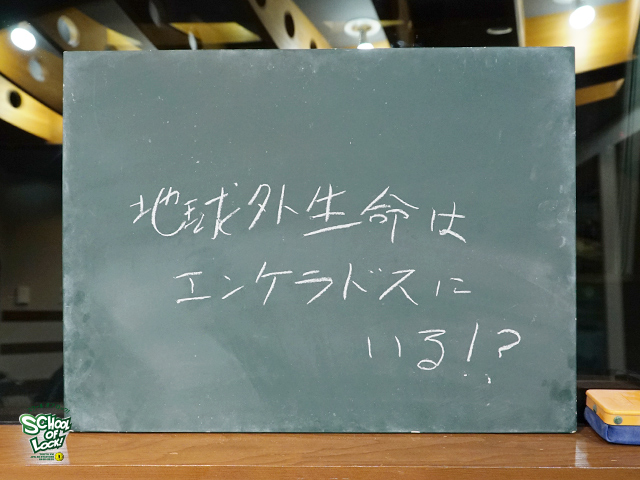 地球外生命は
エンケラドスに
いる!?
SCHOOL
OF
LOCK!